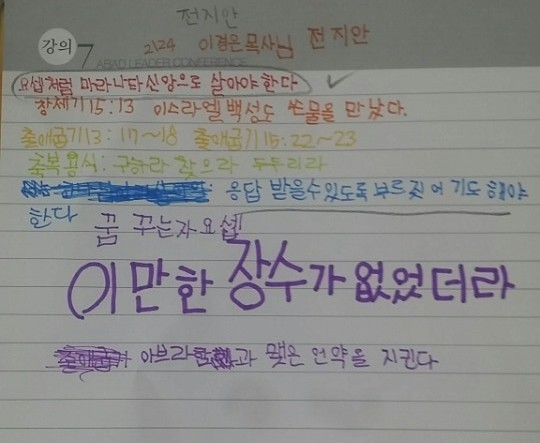 전지안
강의 7 2124 이겸은 목사님 전지안
ABAD LEADER CONFERENCE
요셉처럼 마라나타 신앙으로 살아야 한다
창세기 15:13 이스라엘 백성도 쓴물을 만났다.
출애굽기 13:17~18 출애굽기 15:22~23
축복용식: 구하라 찾으라 두두리라
응답 받을수 있도록 부르짖어 기도 해야
한다 꿈 꾸는자 요셉
이만한 장수가 없었더라
아브라함과 맺은 언약을 지킨다